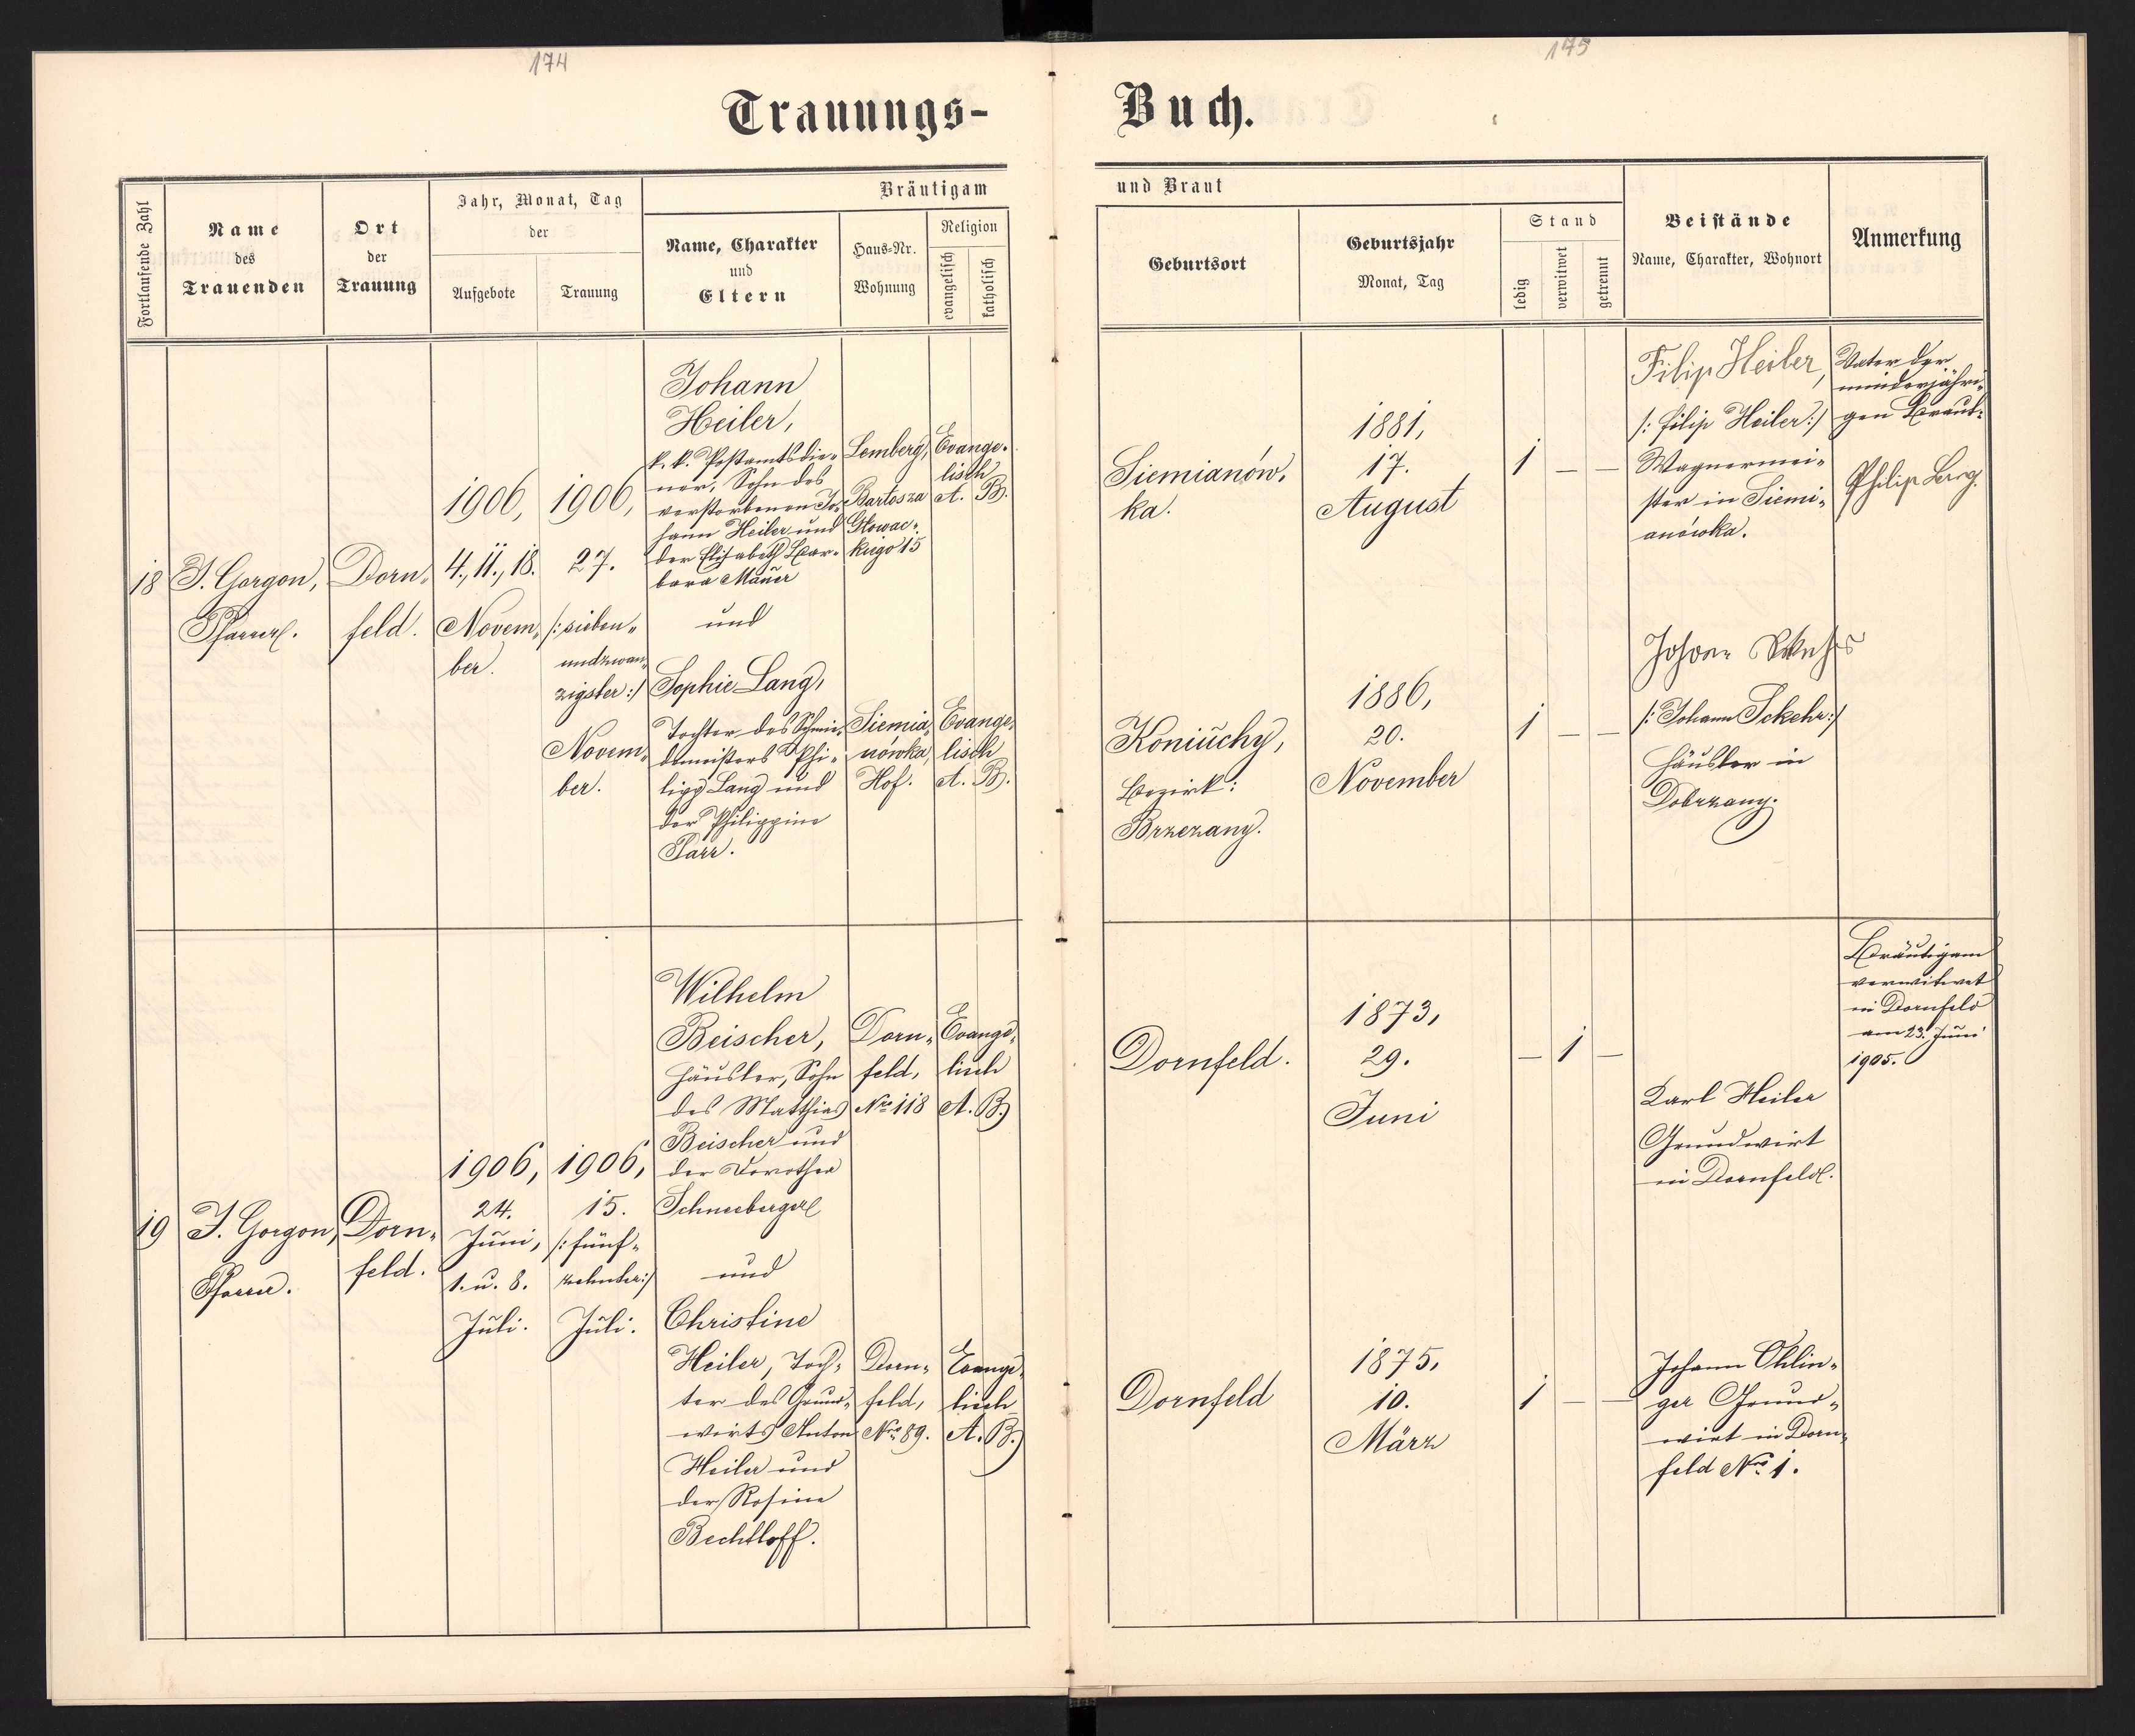 174
175
Trauungs-
Buch.
Fortlaufende Zahl
Name
des
Trauenden
Ort
der
Trauung
Jahr, Monat, Tag
der
Aufgebote
Trauung
Bräutigam
Name, Charakter
und
Eltern
Haus-Nr.
Wohnung
Religion
evangelisch
katholisch
und Braut
Geburtsort
Geburtsjahr
Monat, Tag
Stand
ledig
verwitwet
getrennt
Beistände
Name, Charakter, Wohnort
Anmerkung
18
J. Gorgon,
Pfarrer.
Dorn-
feld.
1906,
4., 11., 18.
Novem-
ber.
1906,
27.
/: sieben-
undzwan-
zigster :/
Novem-
ber.
Johann
Heiler,
k. k. Postamtsdie-
ner, Sohn des
verstorbenen Jo-
hann Heiler und
der Elisabeth Bar-
bara Mauer
und
Sophie Lang,
Tochter des Schmie-
demeisters Phi-
lipp Lang und
der Philippine
Parr.
Lemberg,
Bartosza
Głowac-
kiego 15
Siemia-
nówka,
Hof.
Evange-
lisch
A. B.
Evange-
lisch
A. B.
Siemianów-
ka.
Koniuchy,
Bezirk:
Brzezany.
1881,
17.
August
1886,
20.
November
1 — —
1 — —
Filip Heiler,
/: Filip Heiler :/
Wagnermei-
ster in Siemi-
anówka.
Johann
/: Johann Sckehr :/
Häusler in
Dobrzany.
Vater der
minderjähri-
gen Braut:
Philip
19
J. Gorgon,
Pfarrer.
Dorn-
feld.
1906,
24.
Juni,
1. u. 8.
Juli.
1906,
15.
/: fünf-
zehnter :/
Juli.
Wilhelm
Beischer,
Häusler, Sohn
des Matthias
Beischer und
der Dorothea
Schneeberger
und
Christine
Heiler, Toch-
ter des Grund-
wirts Anton
Heiler und
der Rosine
Bechtloff.
Dorn-
feld,
Nro 118
Dorn-
feld,
Nro 89.
Evange-
lisch
A. B.
Evange-
lisch
A. B.
Dornfeld.
Dornfeld
1873,
29.
Juni
1875,
10.
März
— 1 —
1 — —
Karl Heiler
Grundwirt
in Dornfeld.
Johann Ohlin-
ger Grund-
wirt in Dorn-
feld Nro 1.
Bräutigam
verwitwet
in Dornfeld
am 23. Juni
1905.